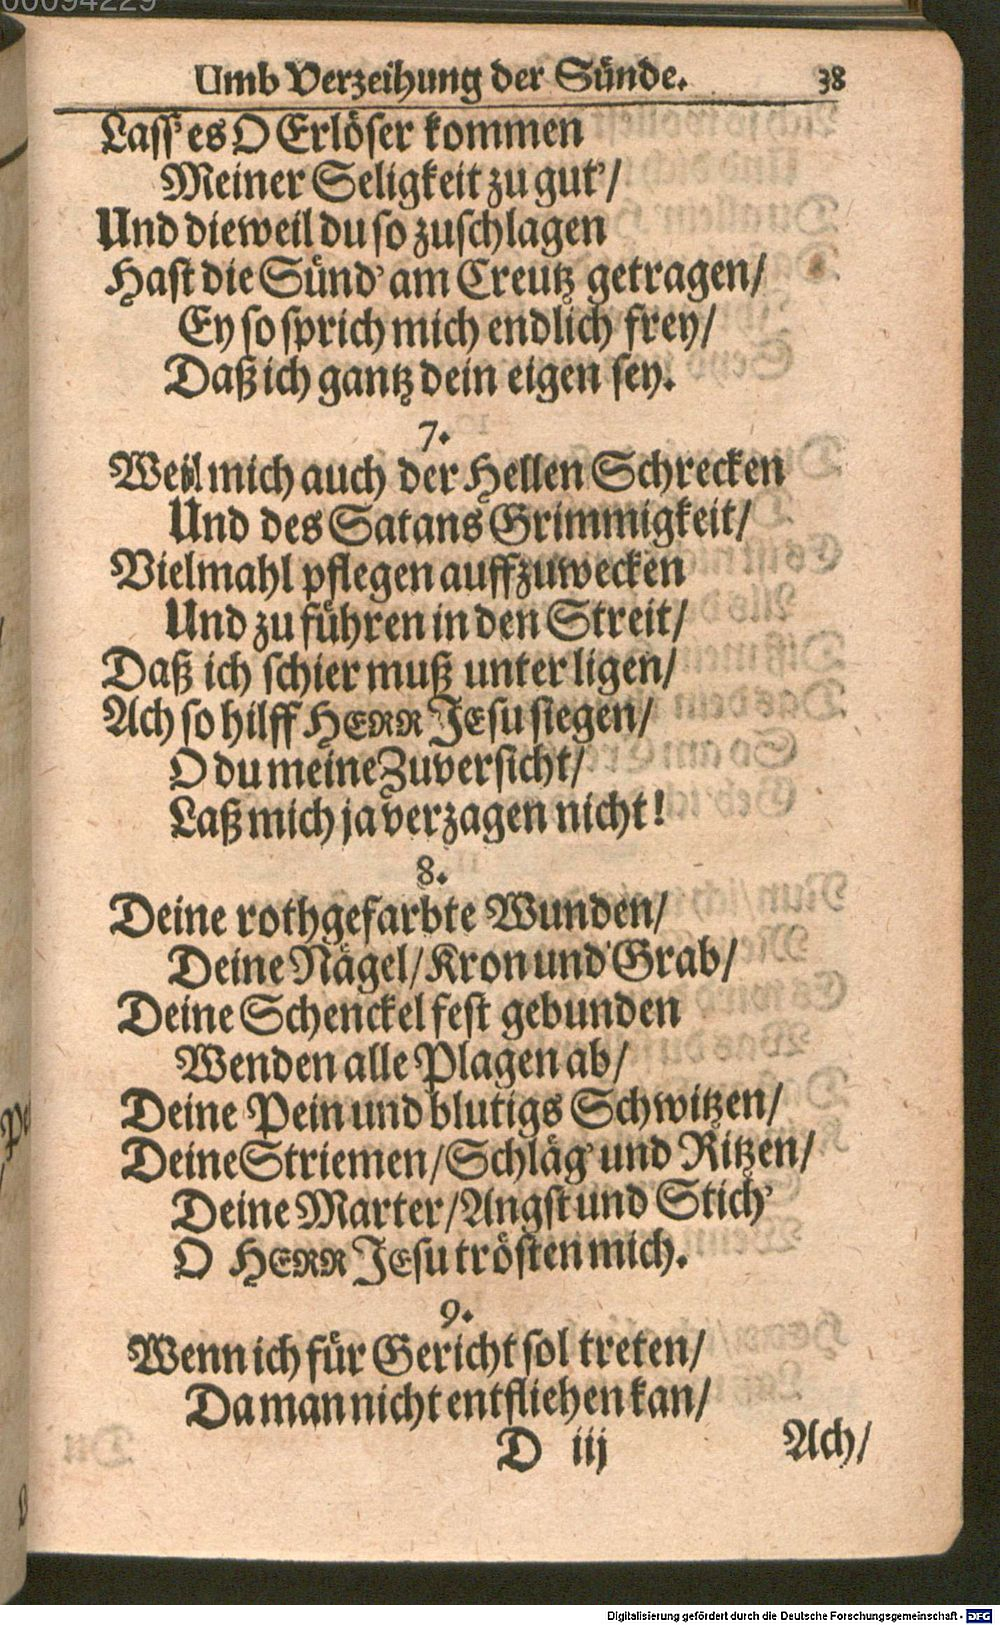 00094229
Umb Verzeihung der Sünde. 38
Lass' es O Erlöser kommen
Meiner Seligkeit zu gut'/
Und dieweil du so zuschlagen
Hast die Sünd' am Creutz getragen/
Ey so sprich mich endlich frey/
Daß ich gantz dein eigen sey.
7.
Weil mich auch der Hellen Schrecken
Und des Satans Grimmigkeit/
Vielmahl pflegen auffzuwecken
Und zu führen in den Streit/
Daß ich schier muß unter ligen/
Ach so hilff HERR JEsu siegen/
O du meine Zuversicht/
Laß mich ja verzagen nicht!
8.
Deine rothgefarbte Wunden/
Deine Nägel/ Kron und Grab/
Deine Schenckel fest gebunden
Wenden alle Plagen ab/
Deine Pein und blutigs Schwitzen/
Deine Striemen/ Schläg' und Ritzen/
Deine Marter/ Angst und Stich'
O HERR JEsu trösten mich.
9.
Wenn ich für Gericht sol treten/
Da man nicht entfliehen kan/
D iij Ach/
Digitalisierung gefördert durch die Deutsche Forschungsgemeinschaft - DFG